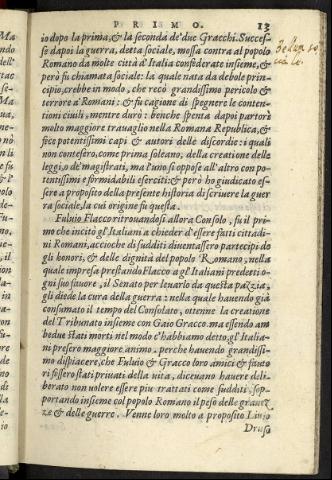 PRIMO. 13
io dopo la prima, & la seconda de' due Gracchi. Succes-
se dapoi la guerra, detta sociale, mossa contra al popolo
Romano da molte città d'Italia confederate insieme, &
però fu chiamata sociale: la quale nata da debole prin-
cipio, crebbe in modo, che recò grandissimo pericolo &
terrore a' Romani: & fu cagione di spegnere le conten-
tioni ciuili, mentre durò: benche spenta dapoi partorì
molto maggiore trauaglio nella Romana Republica, &
fece potentissimi capi & autori delle discordie: i quali
non contesero, come prima soleano, della creatione delle
leggi, o de' magistrati, ma l'uno si oppose all'altro con po-
tentissimi e formidabili eserciti: & però ho giudicato es-
sere a proposito della presente historia di scriuere la guer
ra sociale, la cui origine fu questa.
Fuluio Flacco ritrouandosi allora Consolo, fu il pri-
mo che incitò gl'Italiani a chieder d'essere fatti cittadi-
ni Romani, accioche di sudditi diuentassero partecipi de
gli honori, & delle dignità del popolo Romano, nella
quale impresa prestando Flacco a gl'Italiani predetti o-
gni suo fauore, il Senato per leuarlo da questa pazzia,
gli diede la cura della guerra: nella quale hauendo già
consumato il tempo del Consolato, ottenne la creatione
del Tribunato insieme con Gaio Gracco. ma essendo am
bedue stati morti nel modo c'habbiamo detto, gl'Italia-
ni presero maggiore animo. perche hauendo grandissi-
mo dispiacere, che Fuluio & Gracco loro amici & fauto
ri fossero stati priuati della uita, diceuano hauere deli-
berato non uolere essere piu trattati come sudditi, sop-
portando insieme col popolo Romano il peso delle grauez
ze & delle guerre. Venne loro molto a proposito Liuio
Druso